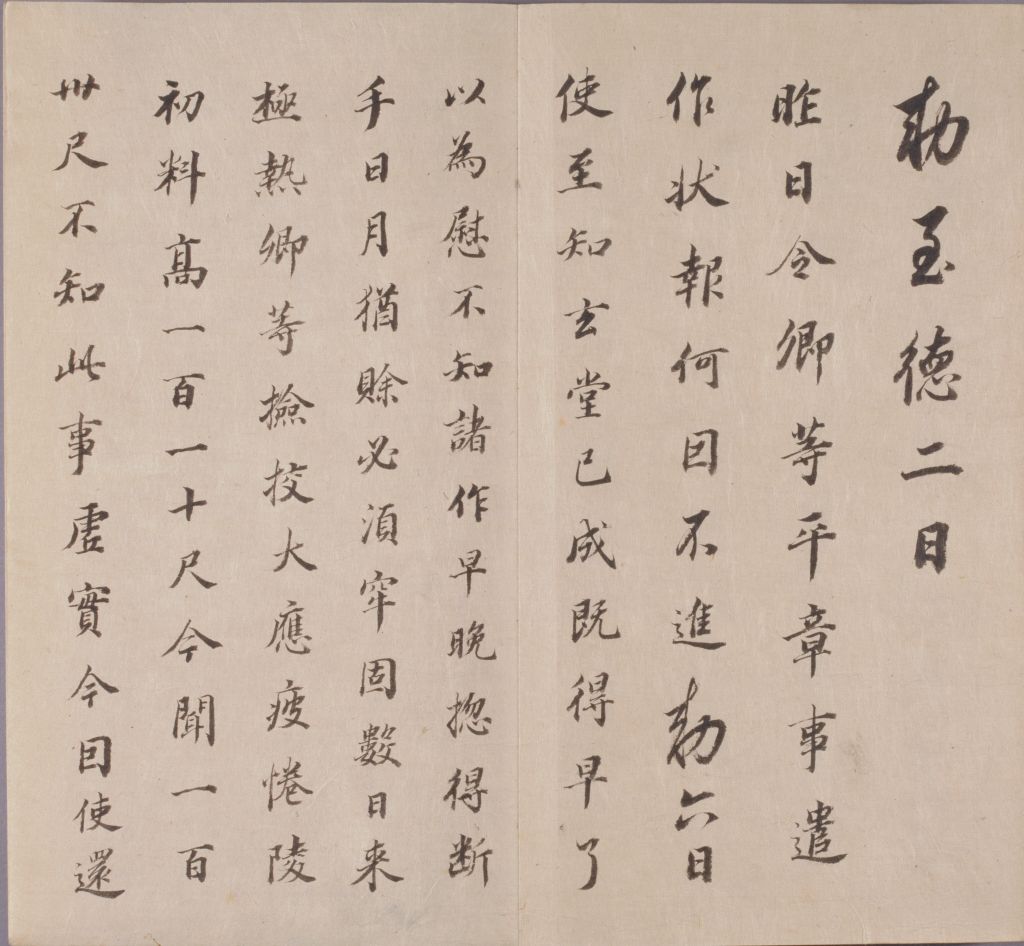 勅至德二日
昨日令卿等平章事遣
作狀報何因不進勅六日
使至知玄堂已成既得早了
以為慰不知諸作早晚揔得斷
手日月猶賒必湏牢固數日來
極熱卿等撿挍大應疲惓陵
初料高一百一十尺今聞一百
卅尺不知此事虛實今因使還